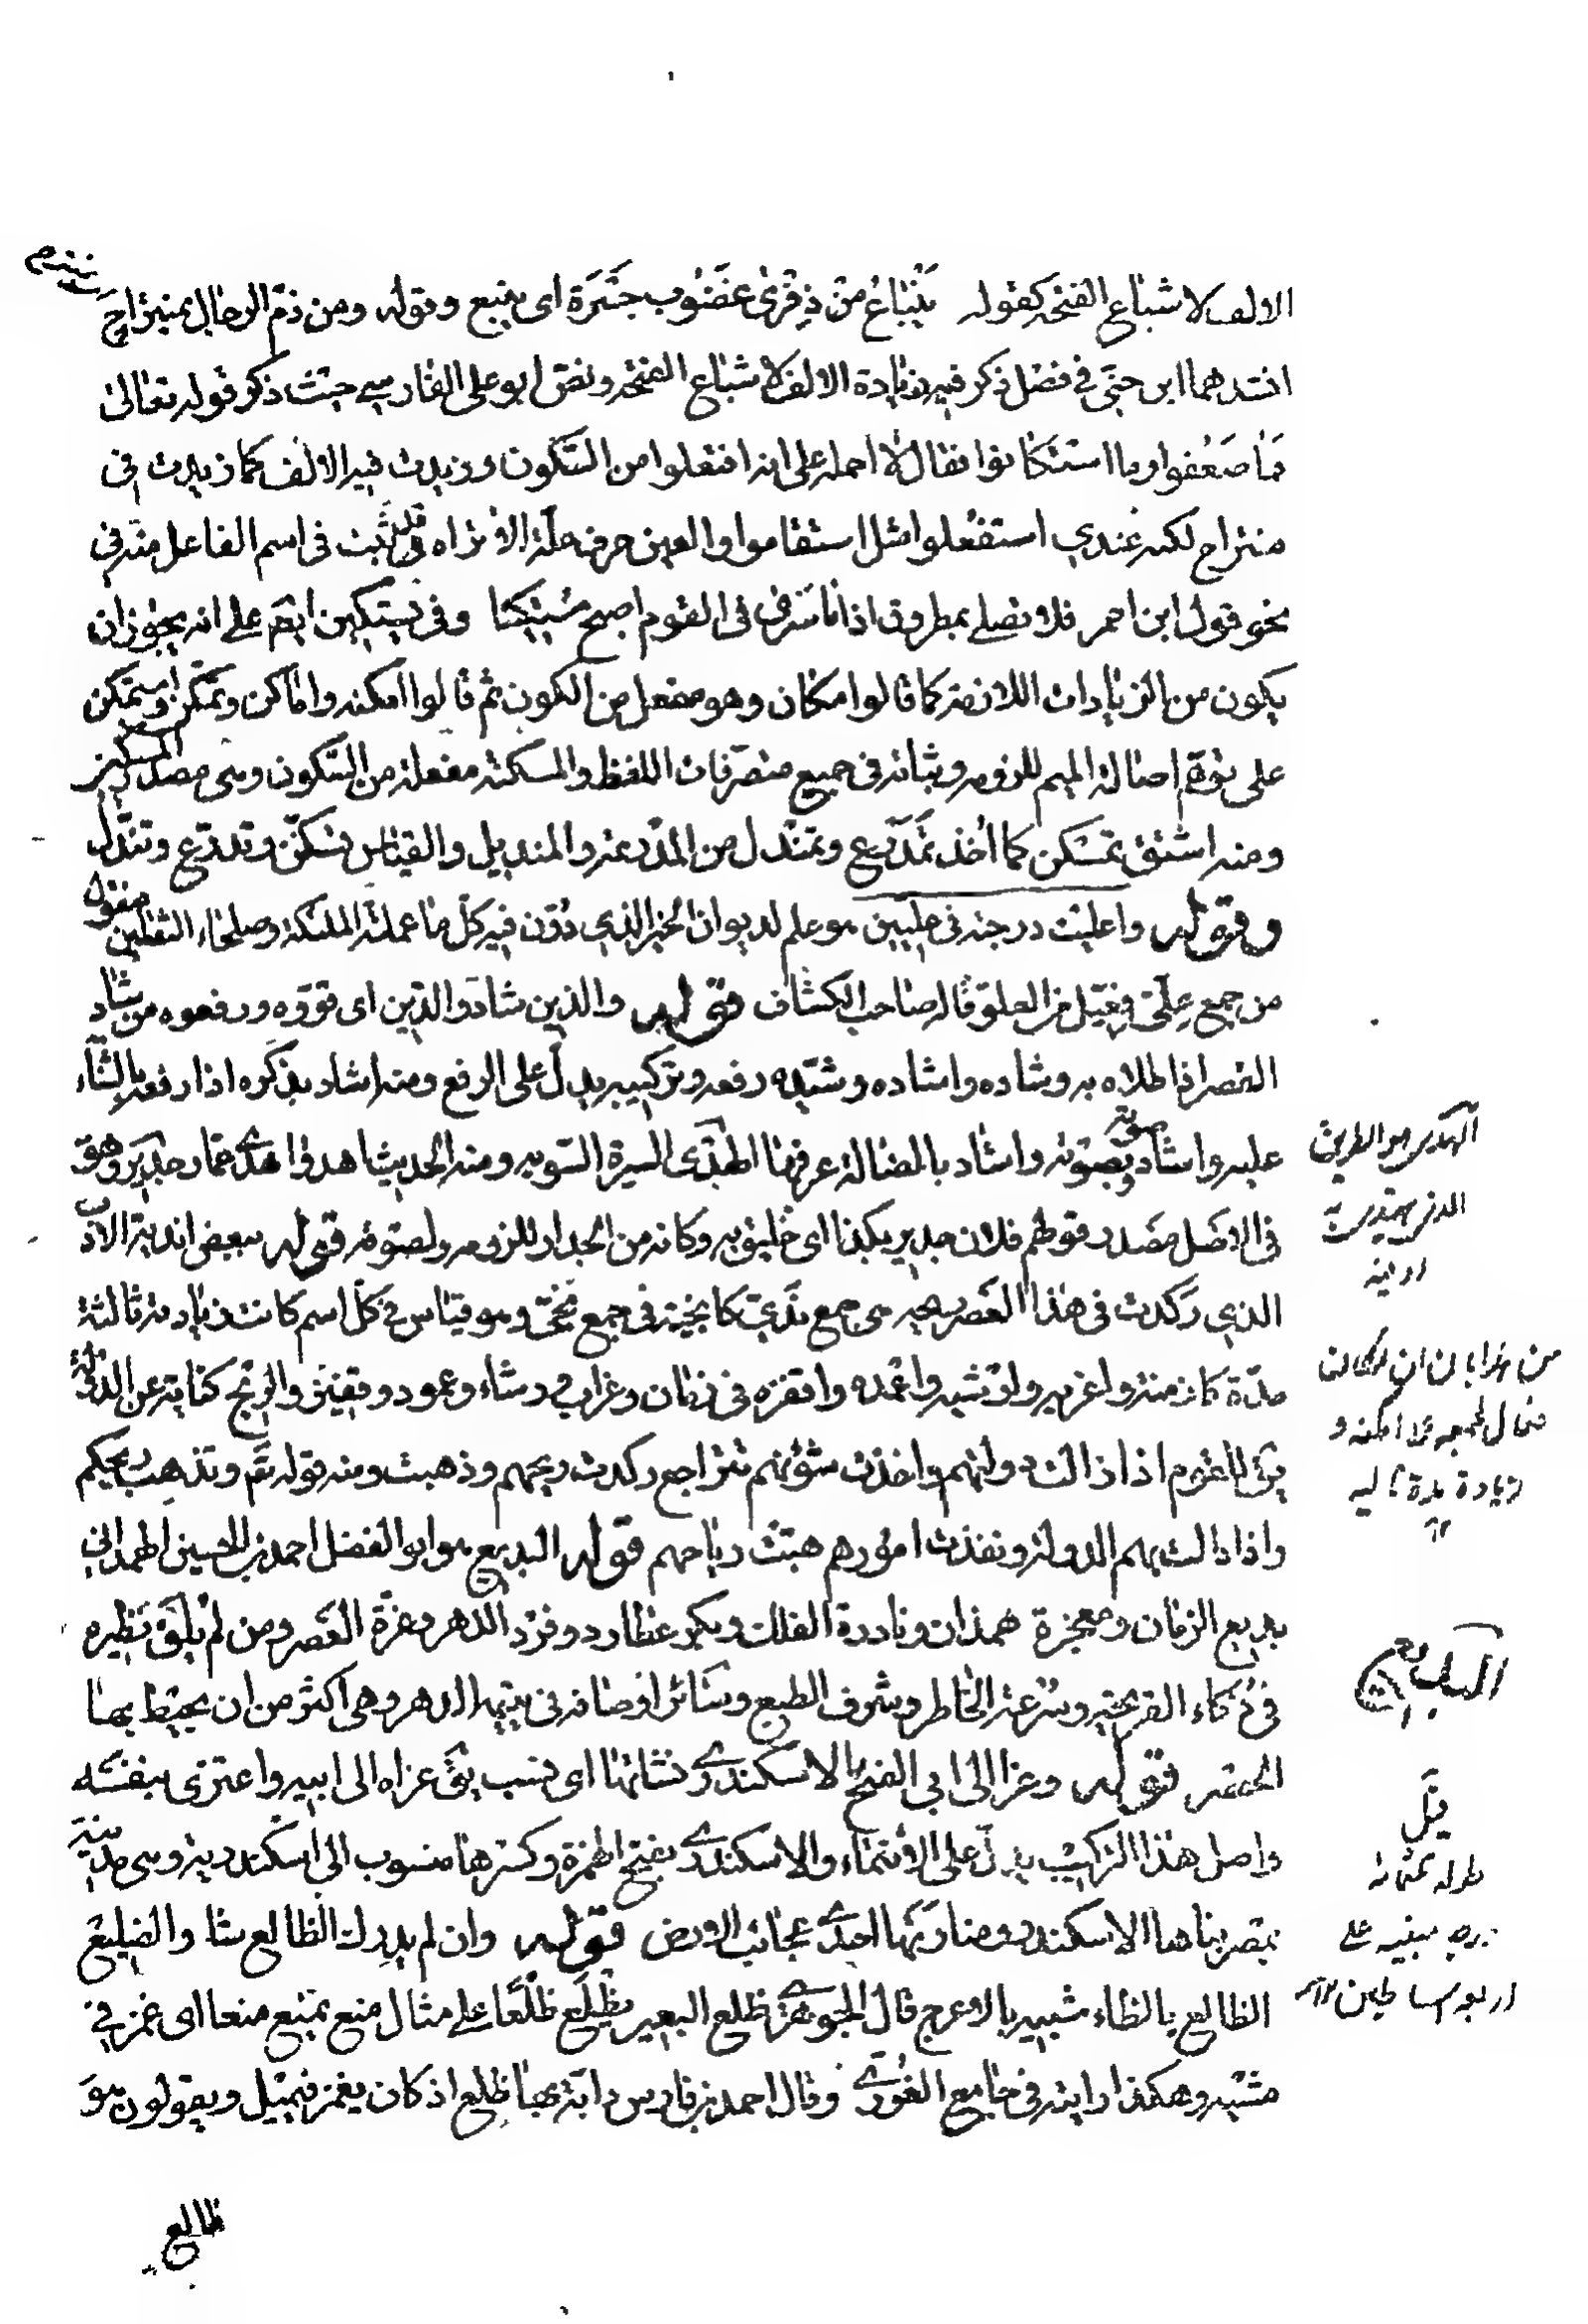 الالف لاشباع الفتحة كقوله ينباع من ذفرى غضوب جسرة اى ينبع وقوله ومن ذم الرجال بمنتزاح
انشدهما ابن جنى فى فصل ذكر فيه زيادة الالف لاشباع الفتحة ونص ابو على الفارسي حيث ذكر قوله تعالى
فما ضعفوا وما استكانوا فقال لا احمله على انه افتعلوا من السكون وزيدت فيه الالف كما زيدت فى
منتزاح لكنه عندي استفعلوا مثل استقاموا والعين حرف علة الا تراه قد ثبت فى اسم الفاعل منه فى
نحو قول ابن احمر فلا تصلي بمطروق اذا ما سرى فى القوم اصبح مستكينا وفى يستكين ايضا على انه يجوز ان
يكون من الزيادات اللازمة كما قالوا مكان وهو مفعل من الكون ثم قالوا امكنه واماكن وتمكن واستمكن
على توهم اصالة الميم للزومه وثباته فى جميع متصرفات اللفظ والمسكنة مفعلة من السكون وهى مصدر المسكين
ومنه اشتق تمسكن كما اخذ تمدرع وتمندل من المدرعة والمنديل والقياس تسكن وتدرع وتندل
وقوله واعليت درجته فى عليين هو علم لديوان الخير الذي دون فيه كل ما عملته الملئكة وصلحاء الثقلين منقول
من جمع على فعيل من العلو قاله صاحب الكشاف قوله والذين شادوا الدين اى قووه ورفعوه من شاد
القصر اذا طلاه به وشاده واشاده وشيده رفعه وتركيبه يدل على الرفع ومنه اشاد بذكره اذا رفعه بالثناء
عليه واشاد بصوته واشاد بالضالة عرفها الهدى السيرة السويه ومنه الحديث اهدوا هدى عمار جدير وهو
فى الاصل مصدر قولهم فلان جدير بكذا اى خليق به وكانه من الجدار للزومه ولصوقه قوله ببعض اندية الادب
الذي ركدت فى هذا العصر ريحه هى جمع ندي كانجية فى جمع نجي وهو قياس فى كل اسم كانت زيادته ثالثة
مدة كازمنة واغربه وارشيه واعمده واقفزه فى زمان وغراب ورشاء وعمود وقفيز والريح كناية عن الدولة
يق للقوم اذا زالت دولتهم واخذت شؤنهم تتراجع ركدت ريحهم وذهبت ومنه قوله تع وتذهب ريحكم
واذا دالت بهم الدولة ونفذت امورهم هبت رياحهم قوله البديع هو ابو الفضل احمد بن الحسين الهمدانى
بديع الزمان ومعجزة همذان ونادرة الفلك وبكر عطارد وفرد الدهر وغرة العصر ومن لم يلق نظيره
فى ذكاء القريحة وسرعة الخاطر وشرف الطبع وسائر اوصافه فى يتيمة الدهر وهى اكثر من ان يحيط بها
الحصر قوله وعزا الى ابي الفتح الاسكندري نشأتها اى نسب يق عزاه الى ابيه واعتزى بنفسه
واصل هذا التركيب يدل على الانتماء والاسكندري بفتح الهمزة وكسرها منسوب الى اسكندرية وهى مدينة
بمصر بناها الاسكندر ومنارتها احدى عجائب الارض قوله وان لم يدرك الظالع شأو الضليع
الظالع بالظاء شبيه بالاعرج قال الجوهرى ظلع البعير يظلع ظلعا على مثال منع يمنع منعا اى غمز فى
مشيه وهكذا رايته فى جامع الغوري وقال احمد بن فارس دابة بها ظلع اذ كان يغمز فيميل ويقولون هو
ظالع
الهدى هو الطريق
صوته
من
زيادة مدة ثالثة
البديع
قيل
طوله ثلثمائة
مبنيه على
اربعة